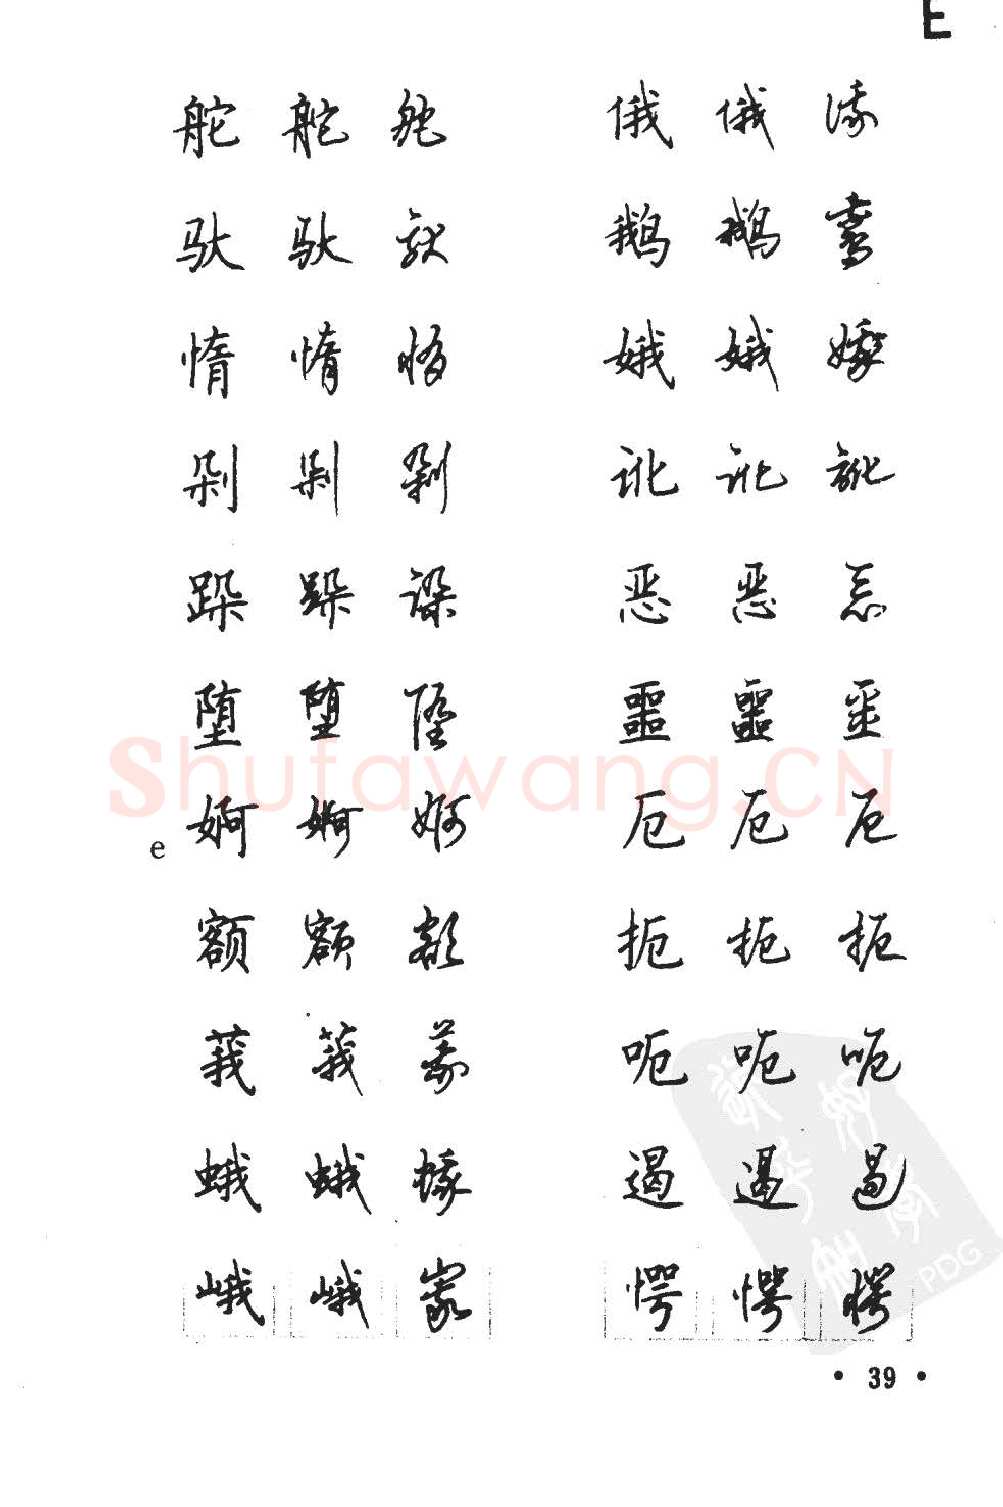 E
舵 舵 舵 俄 俄 俄
驮 驮 驮 鹅 鹅 鹅
惰 惰 惰 娥 娥 娥
剁 剁 剁 讹 讹 讹
跺 跺 跺 恶 恶 恶
堕 堕 堕 噩 噩 噩
Shufawang.CN
e 婀 婀 婀 厄 厄 厄
额 额 额 扼 扼 扼
莪 莪 莪 呃 呃 呃
蛾 蛾 蛾 遏 遏 遏
峨 峨 峨 愕 愕 愕
PDG
• 39 •